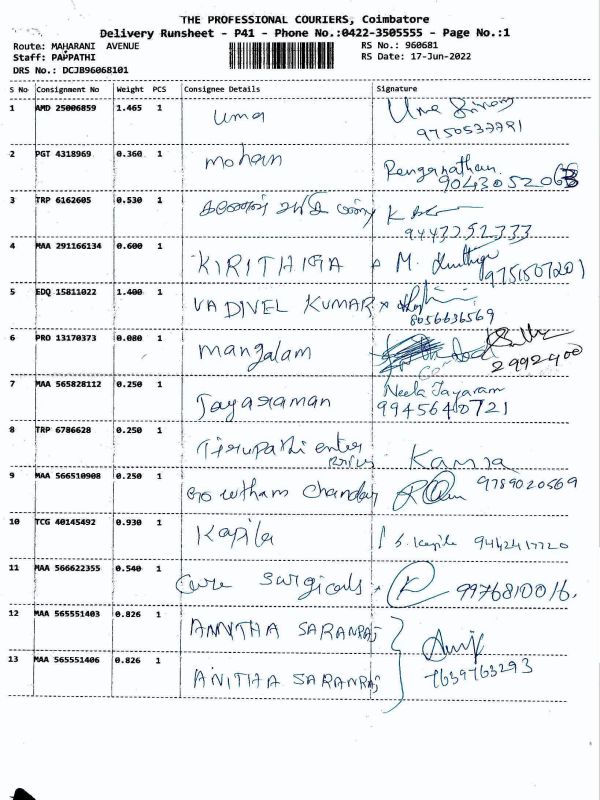 THE PROFESSIONAL COURIERS, Coimbatore
Delivery Runsheet - P41 - Phone No.:0422-3505555 - Page No.:1
Route: MAHARANI AVENUE RS No.: 960681
Staff: PAPPATHI RS Date: 17-Jun-2022
DRS No.: DCJB96068101
S No Consignment No Weight PCS Consignee Details Signature
1 AMD 25006859 1.465 1 Uma
9750533791
2 PGT 4318969 0.360 1 Mohan Renganathan
3 TRP 6162605 0.530 1
9443252333
4 MAA 291166134 0.600 1 KIRITHIGA M.
9751507201
5 EDQ 15811022 1.400 1 VADIVEL KUMAR
8056636569
6 PRO 13170373 0.080 1 Mangalam
2992400
7 MAA 565828112 0.250 1 Jayaraman Neela Jayaram
9945640721
8 TRP 6786628 0.250 1 Tirupathi enter
prises
9 MAA 566510908 0.250 1 Gowtham Chandar 9789020569
10 TCG 40145492 0.930 1 Kapila S. Kapila 9442417720
11 MAA 566622355 0.540 1 Care Surgicals 9976810016.
12 MAA 565551403 0.826 1 ANITHA SARANRAJ
13 MAA 565551406 0.826 1 ANITHA SARANRAJ 7639763293